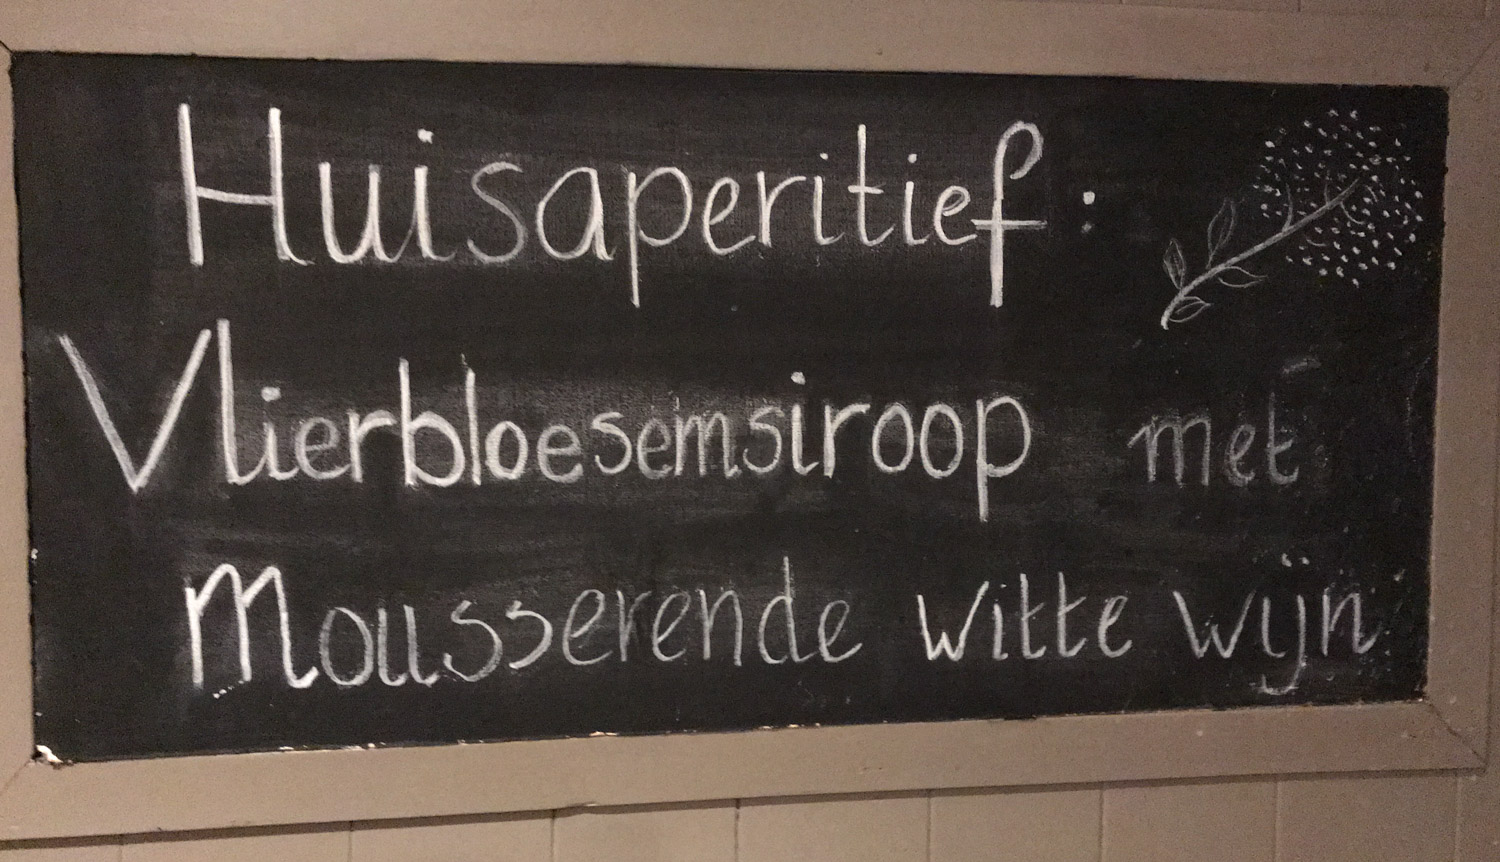 Huisaperitief:
Vlierbloesemsiroop met
Mousserende witte wijn